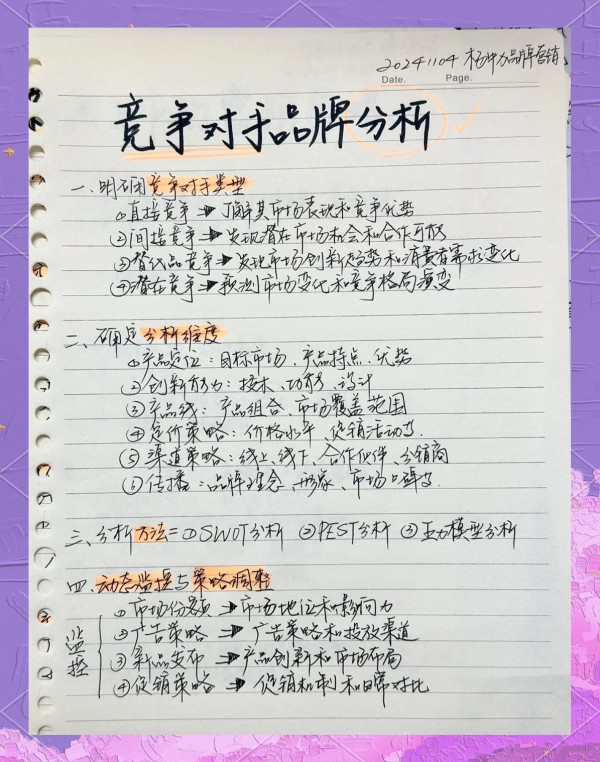 20241104 杨中力品牌营销
Date. Page.
竞争对手品牌分析
一、明确竞争对手类型
①直接竞争→了解其市场表现和竞争优势
②间接竞争→发现潜在市场机会和合作可能
③替代品竞争→发现市场创新趋势和消费者需求变化
④潜在竞争→预测市场变化和竞争格局演变
二、确定分析维度
①产品定位：目标市场、产品特点、优势
②创新能力：技术、功能、设计
③产品线：产品组合、市场覆盖范围
④定价策略：价格水平、促销活动等.
⑤渠道策略：线上、线下、合作伙伴、分销商
⑥传播：品牌理念、形象、市场口碑等.
三、分析方法=①SWOT分析 ②PEST分析 ③五力模型分析
四、动态监控与策略调整
监控
①市场份额→市场地位和影响力
②广告策略→广告策略和投放渠道
③新品发布→产品创新和市场布局
④促销策略→促销机制和日常对比